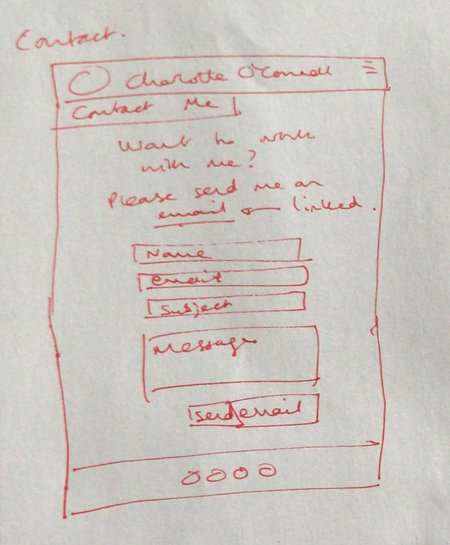 Contact.
Charlotte O'Connell
Contact Me
Want to work
with me?
Please send me an
email ← linked.
Name
email
Subject
Message
send email